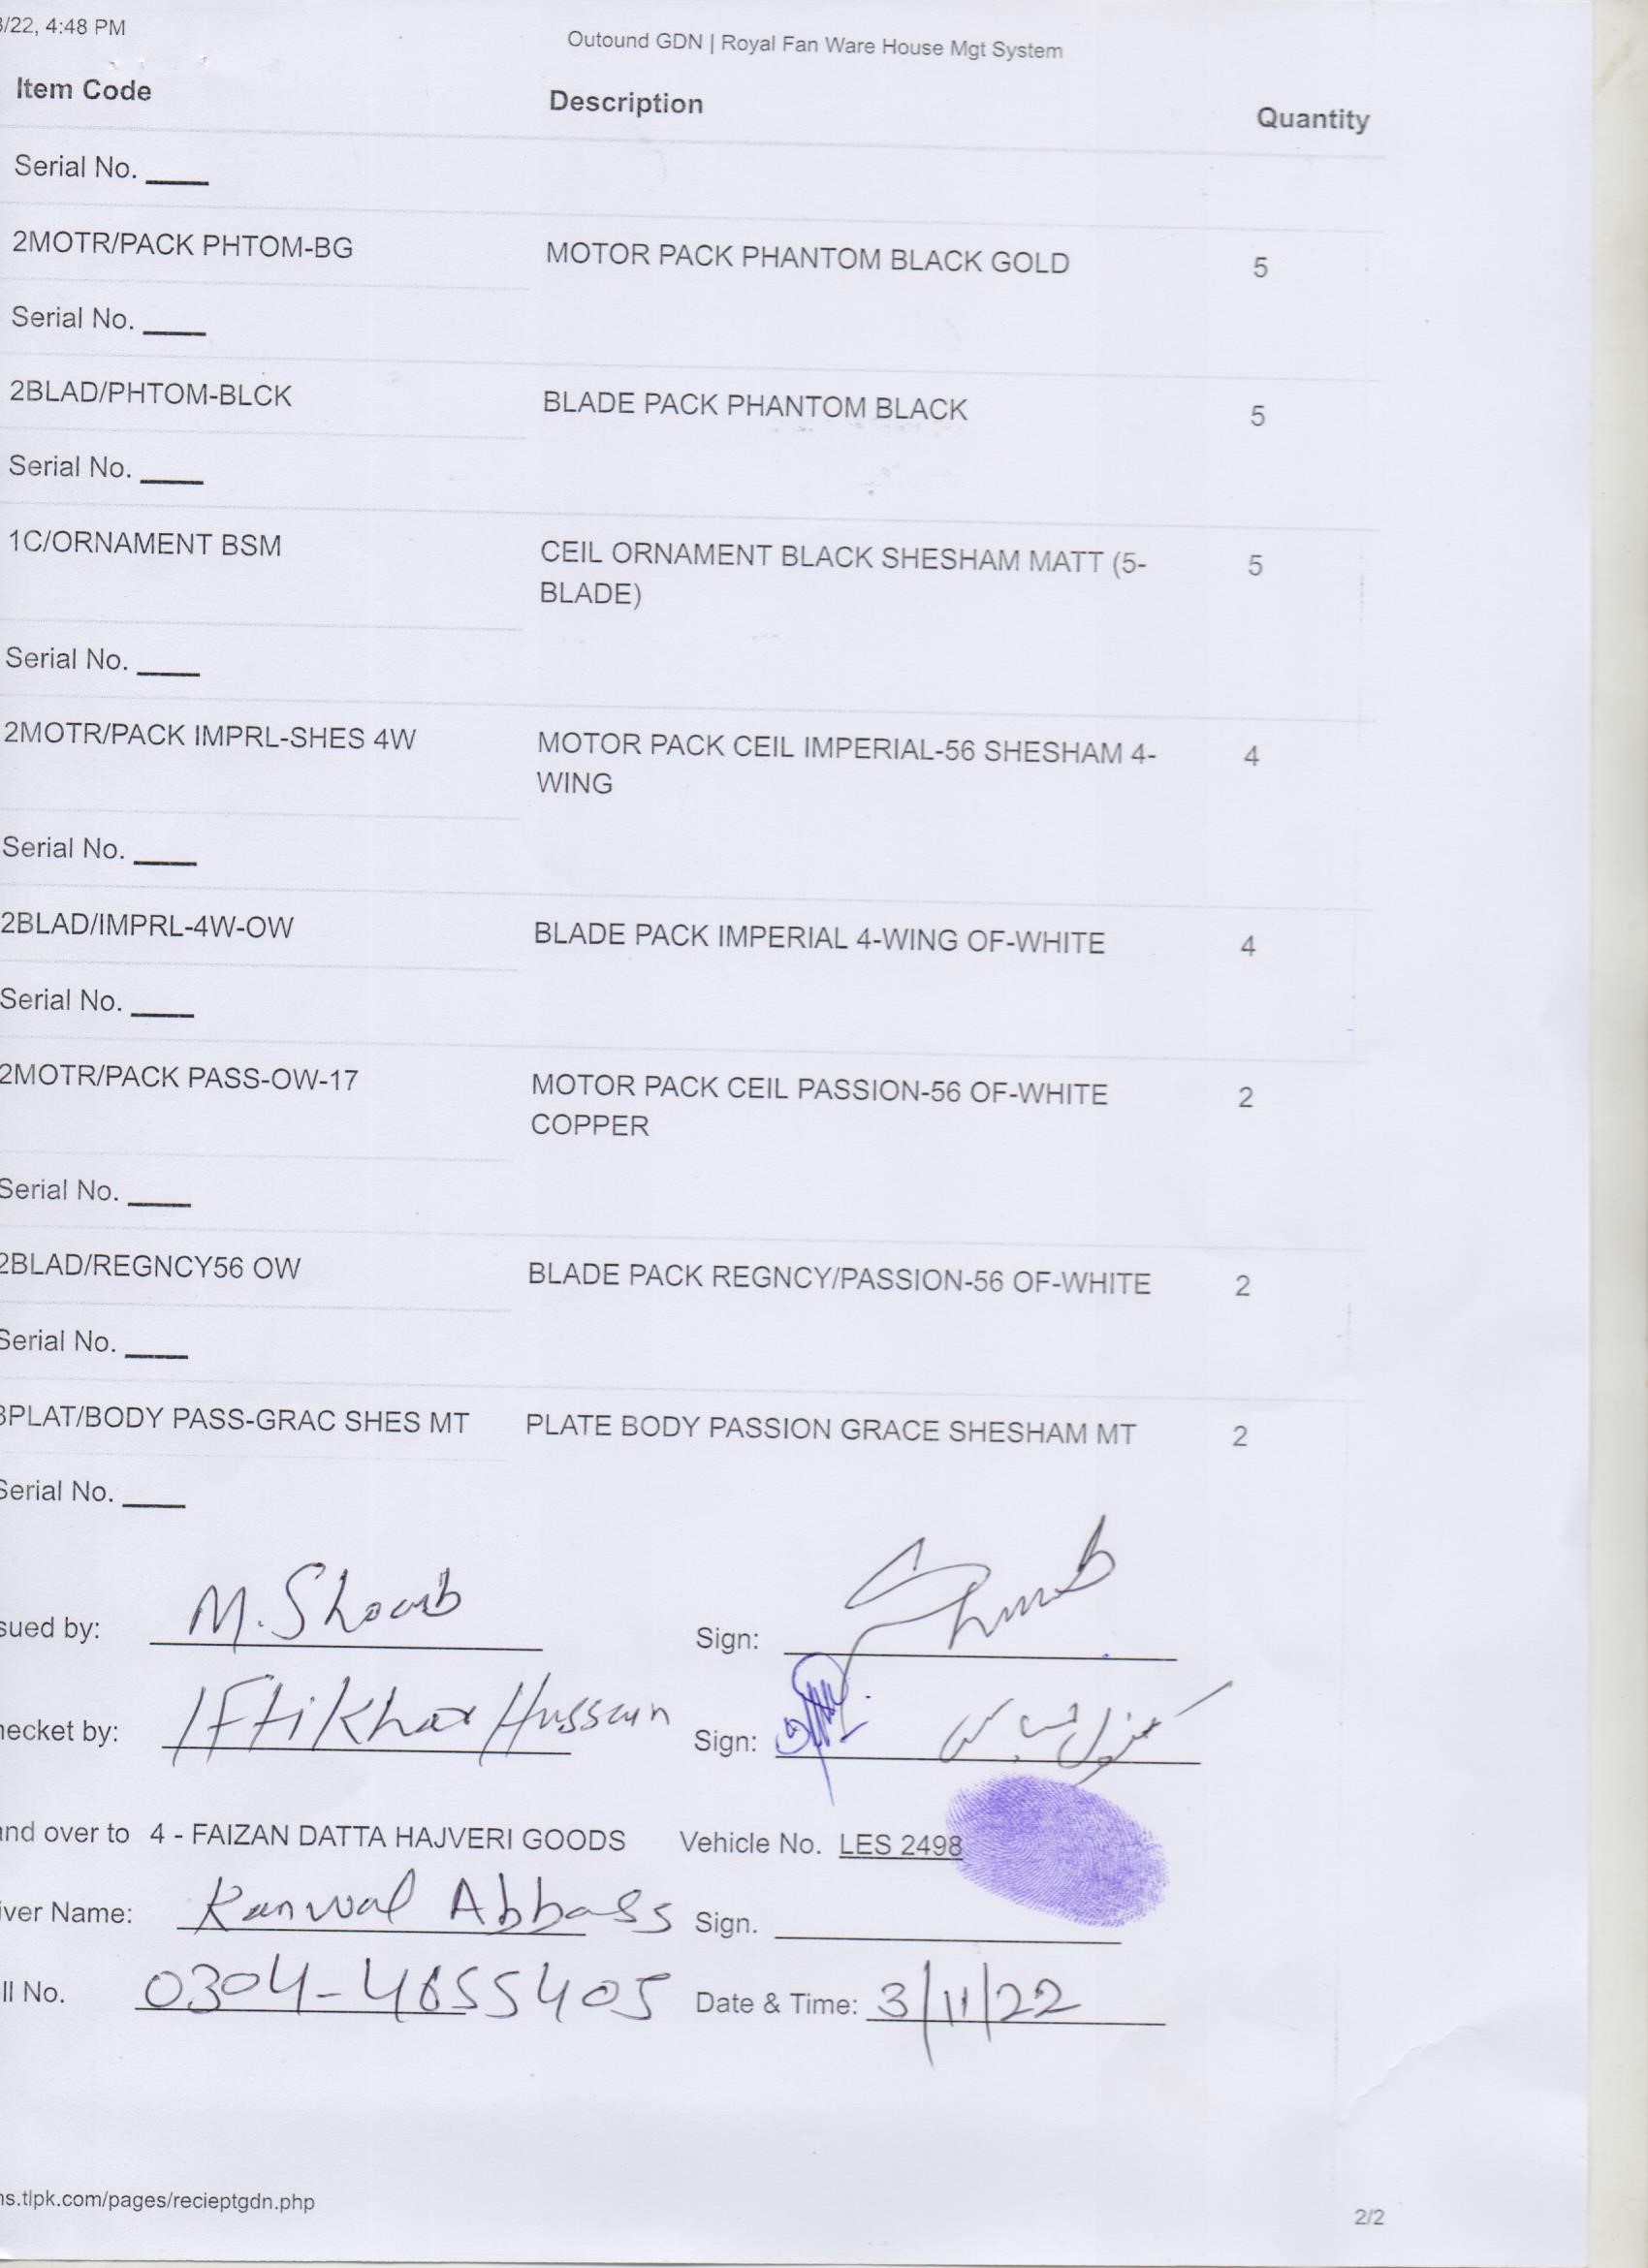 3/22, 4:48 PM
Outound GDN | Royal Fan Ware House Mgt System
Item Code Description Quantity
Serial No. ____
2MOTR/PACK PHTOM-BG MOTOR PACK PHANTOM BLACK GOLD 5
Serial No. ____
2BLAD/PHTOM-BLCK BLADE PACK PHANTOM BLACK 5
Serial No. ____
1C/ORNAMENT BSM CEIL ORNAMENT BLACK SHESHAM MATT (5- 5
BLADE)
Serial No. ____
2MOTR/PACK IMPRL-SHES 4W MOTOR PACK CEIL IMPERIAL-56 SHESHAM 4- 4
WING
Serial No. ____
2BLAD/IMPRL-4W-OW BLADE PACK IMPERIAL 4-WING OF-WHITE 4
Serial No. ____
2MOTR/PACK PASS-OW-17 MOTOR PACK CEIL PASSION-56 OF-WHITE 2
COPPER
Serial No. ____
2BLAD/REGNCY56 OW BLADE PACK REGNCY/PASSION-56 OF-WHITE 2
Serial No. ____
3PLAT/BODY PASS-GRAC SHES MT PLATE BODY PASSION GRACE SHESHAM MT 2
Serial No. ____
sued by: M. Shoaib Sign:
hecket by: Iftikhar Hussain Sign:
and over to 4 - FAIZAN DATTA HAJVERI GOODS Vehicle No. LES 2498
iver Name: Kanwal Abbass Sign.
ll No. 0304-4655405 Date & Time: 3/11/22
ns.tlpk.com/pages/recieptgdn.php
2/2